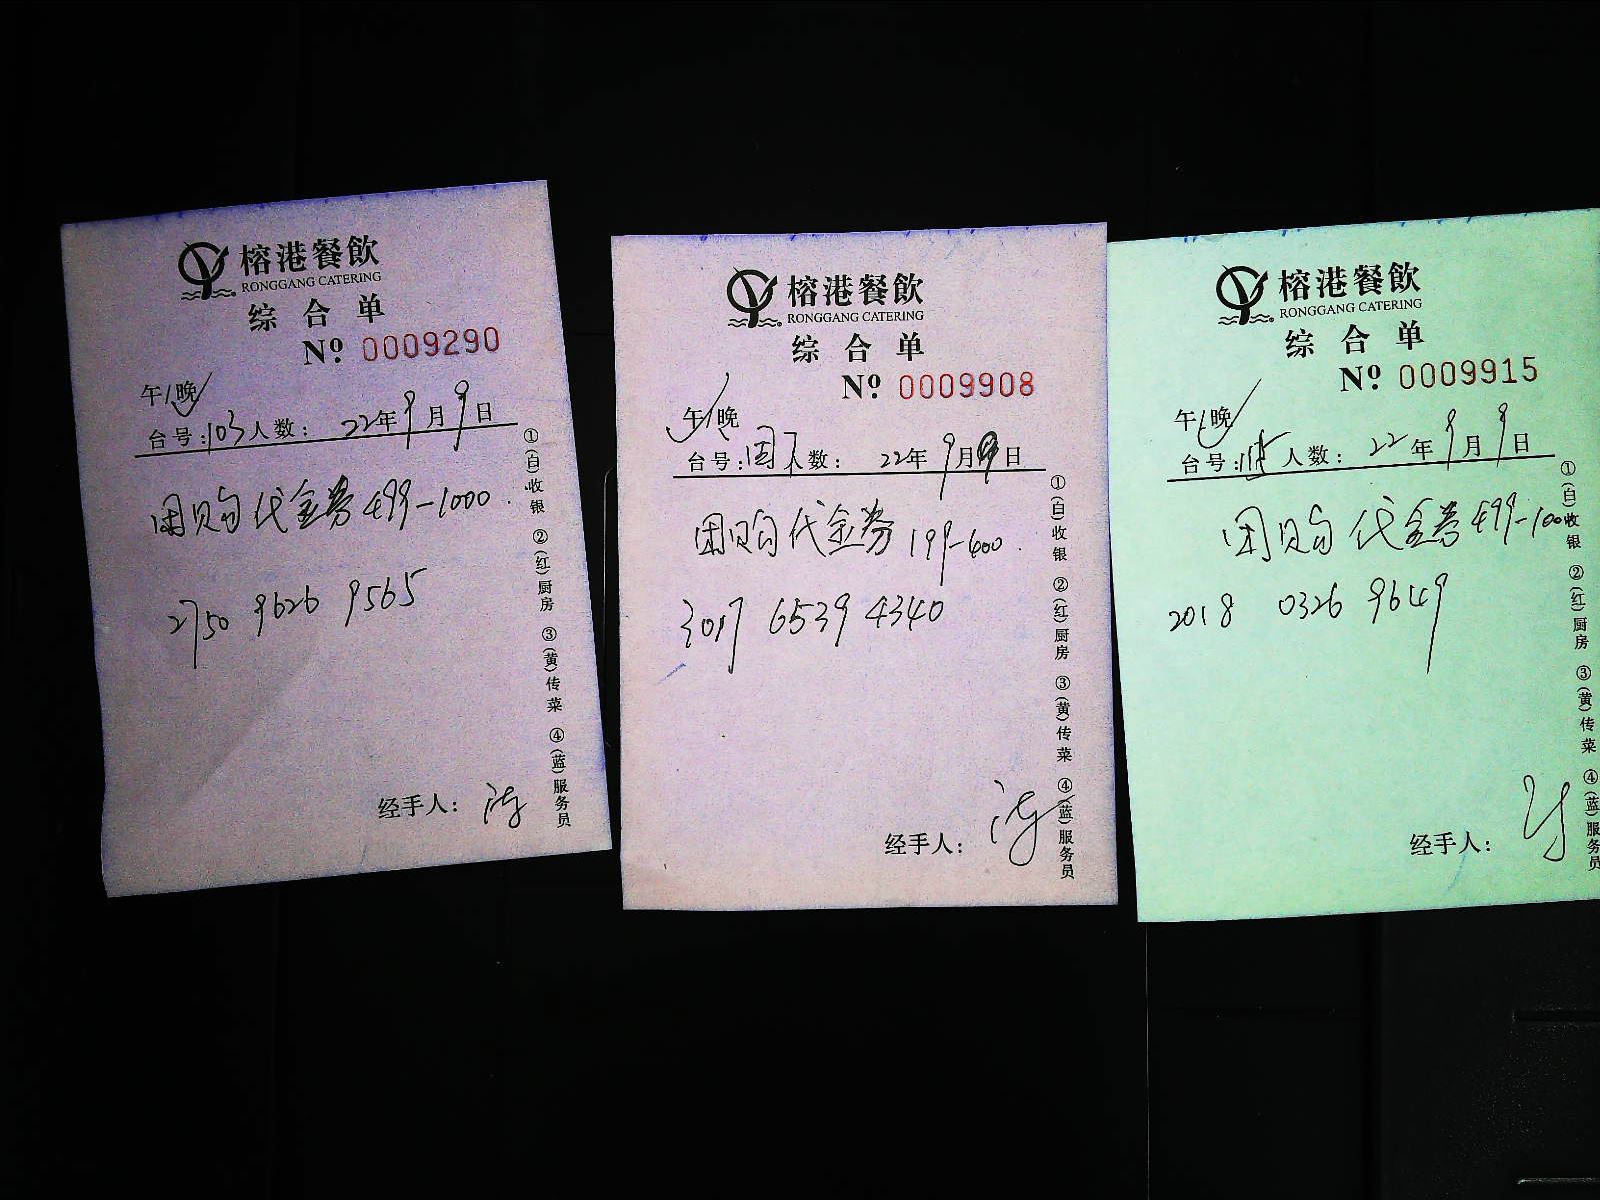 榕港餐飲
RONGGANG CATERING
综合单
Nº 0009290
午/晚
台号:103人数: 22年9月9日
团购代金券499-1000
2750 9626 9565
经手人:
①(白)收银 ②(红)厨房 ③(黄)传菜 ④(蓝)服务员
榕港餐飲
RONGGANG CATERING
综合单
Nº 0009908
午/晚
台号: 人数: 22年9月9日
团购代金券199-400
3017 6539 4340
经手人:
①(白)收银 ②(红)厨房 ③(黄)传菜 ④(蓝)服务员
榕港餐飲
RONGGANG CATERING
综合单
Nº 0009915
午/晚
台号: 人数: 22年9月9日
团购代金券499-1000
2018 0326 9649
经手人:
①(白)收银 ②(红)厨房 ③(黄)传菜 ④(蓝)服务员